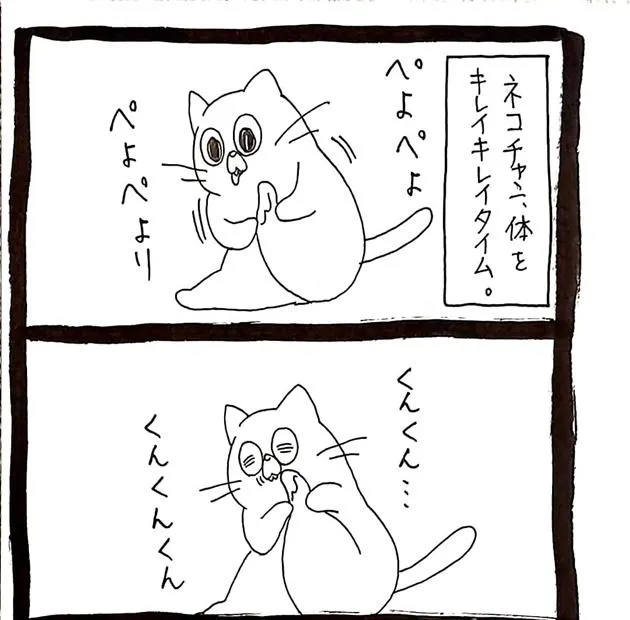 ネコチャン、体を
キレイキレイタイム。
ぺよぺよ
ぺよぺより
くんくん…
くんくんくん